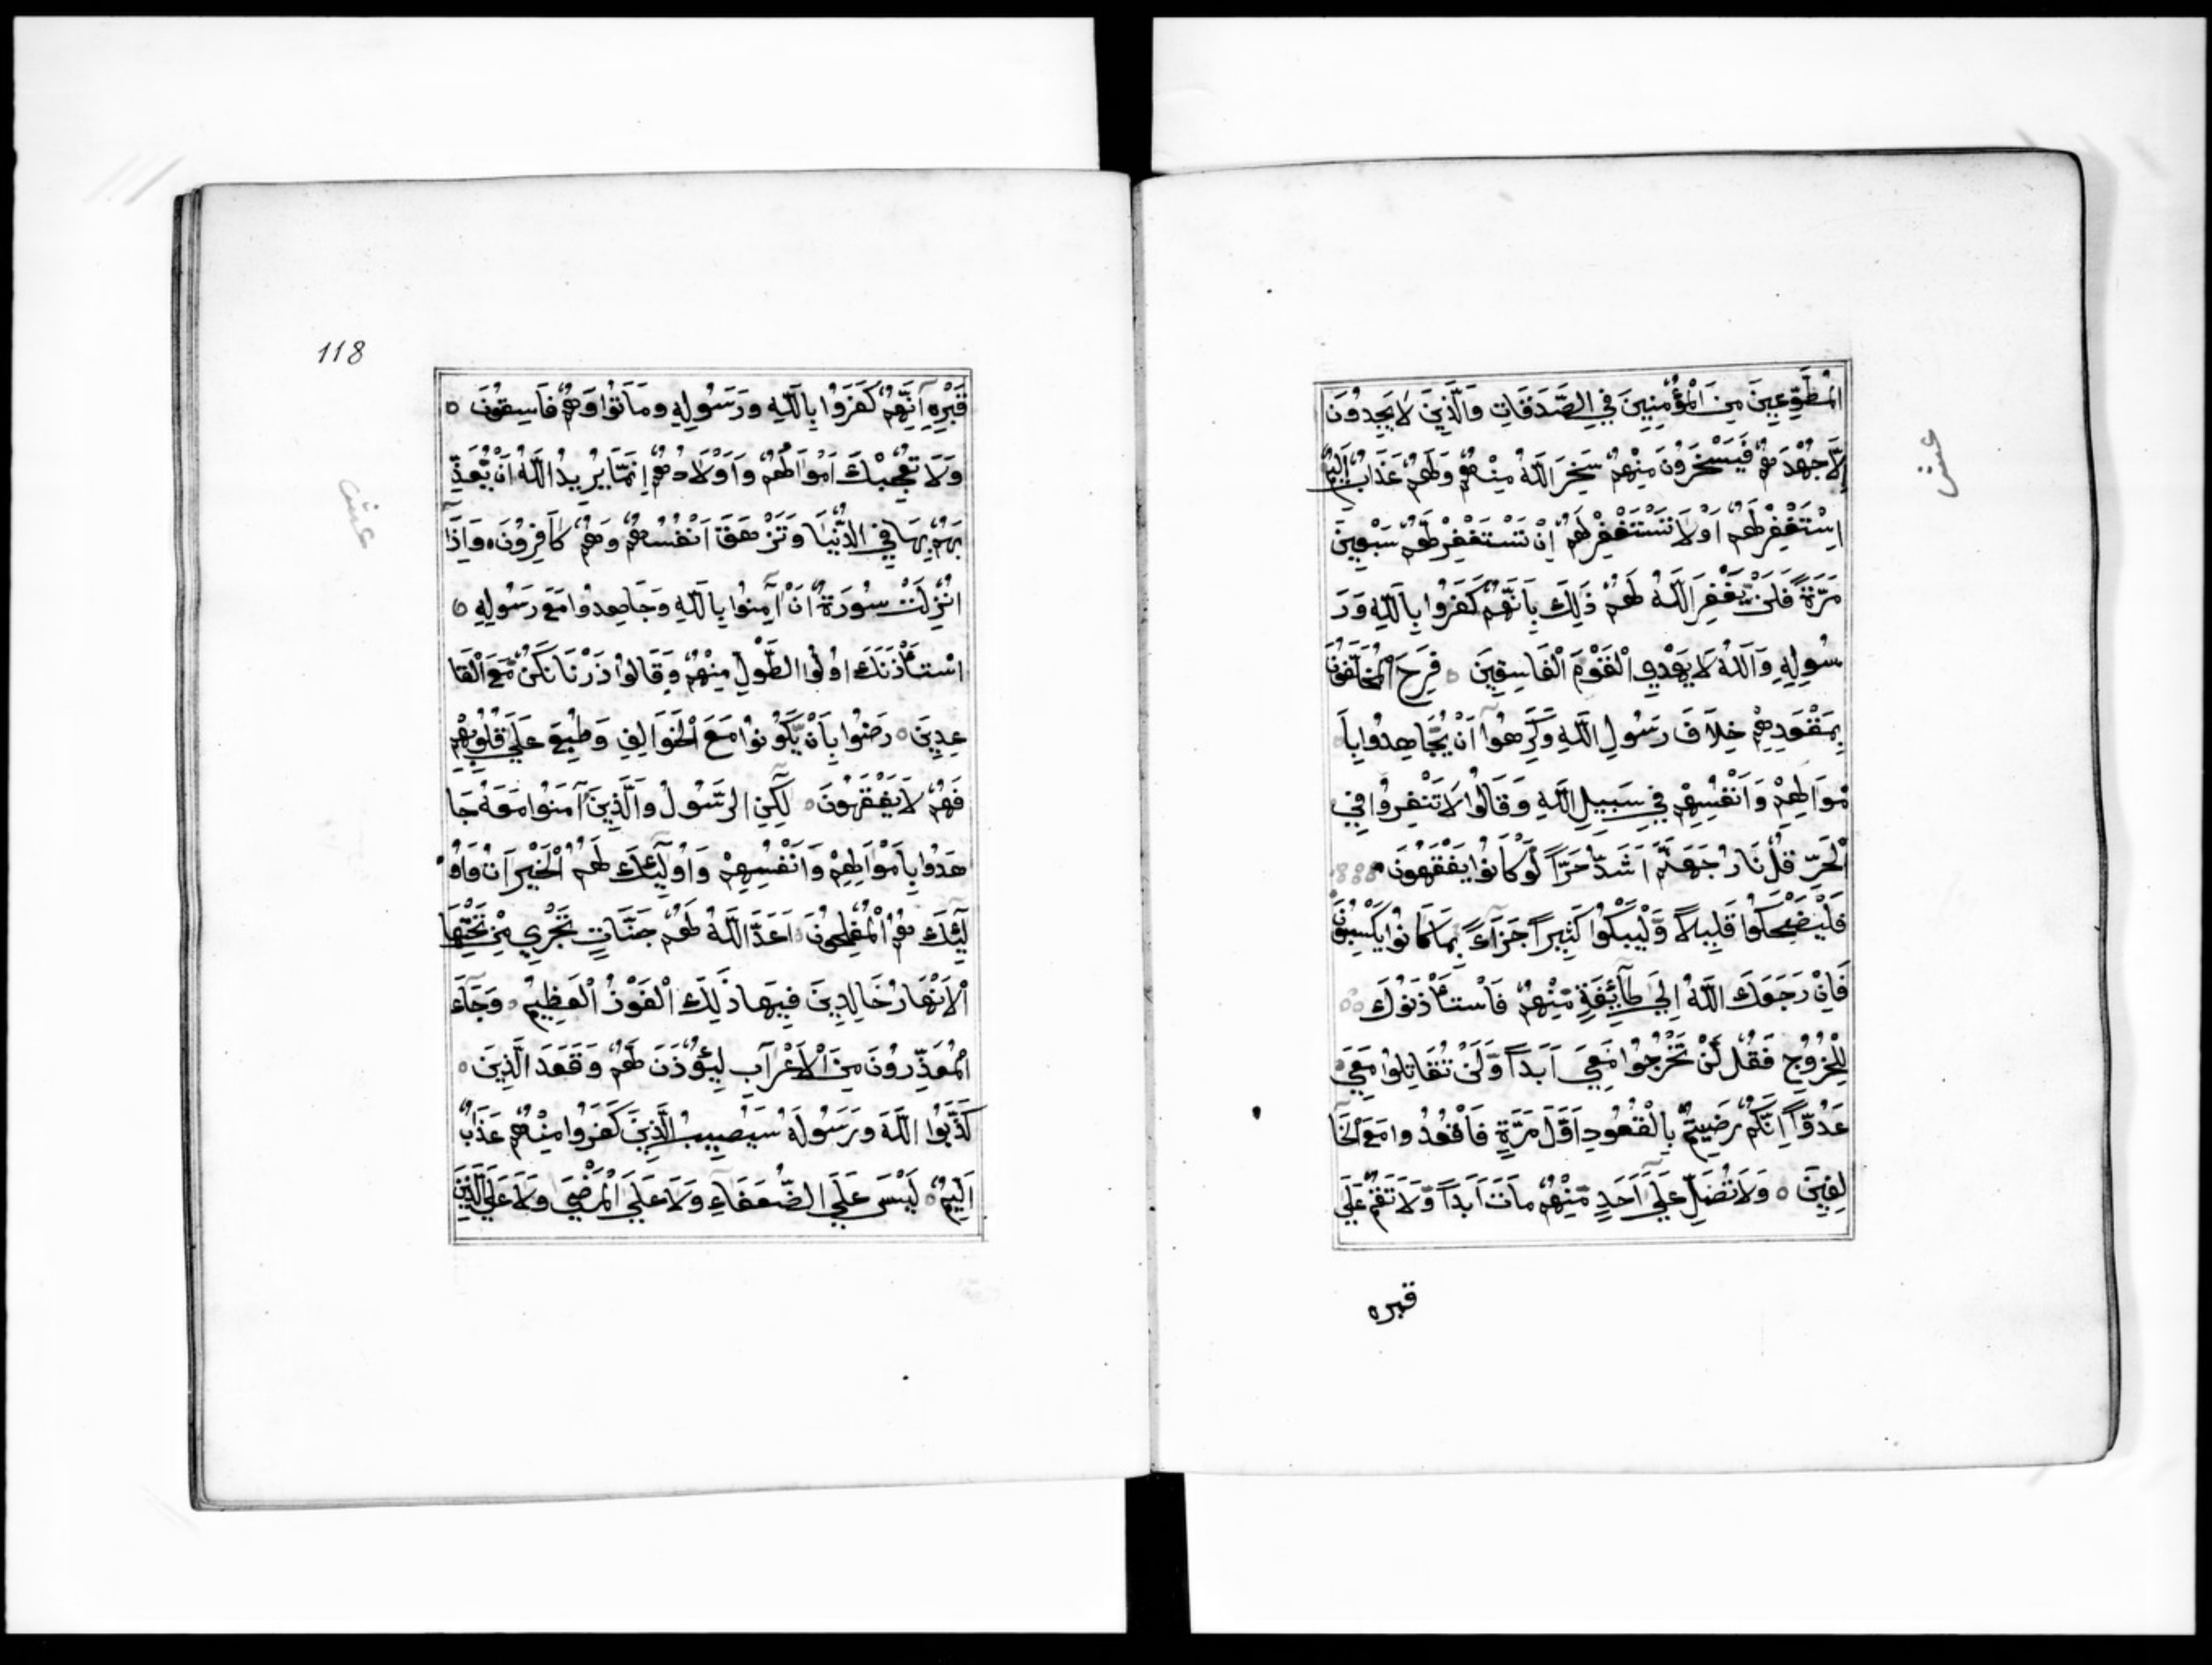 الْمُطَّوِّعِينَ مِنَ الْمُؤْمِنِينَ فِي الصَّدَقَاتِ وَالَّذِينَ لَا يَجِدُونَ
إِلَّا جُهْدَهُمْ فَيَسْخَرُونَ مِنْهُمْ سَخِرَ اللَّهُ مِنْهُمْ وَلَهُمْ عَذَابٌ أَلِيمٌ
اِسْتَغْفِرْ لَهُمْ اَوْ لَا تَسْتَغْفِرْ لَهُمْ اِنْ تَسْتَغْفِرْ لَهُمْ سَبْعِينَ
مَرَّةً فَلَنْ يَّغْفِرَ اللَّهُ لَهُمْ ذَلِكَ بِاَنَّهُمْ كَفَرُوا بِاللَّهِ وَرَ
سُولِهِ وَاللَّهُ لَا يَهْدِي الْقَوْمَ الْفَاسِقِينَ ٥ فَرِحَ الْمُخَلَّفُونَ
بِمَقْعَدِهِمْ خِلَافَ رَسُولِ اللَّهِ وَكَرِهُوا اَنْ يُّجَاهِدُوا بِاَ
مْوَالِهِمْ وَاَنْفُسِهِمْ فِي سَبِيلِ اللَّهِ وَقَالُوا لَا تَنْفِرُوا فِي
الْحَرِّ قُلْ نَارُ جَهَنَّمَ اَشَدُّ حَرًّا لَوْ كَانُوا يَفْقَهُونَ
فَلْيَضْحَكُوا قَلِيلًا وَّلْيَبْكُوا كَثِيرًا جَزَآءً بِمَا كَانُوا يَكْسِبُونَ
فَاِنْ رَجَعَكَ اللَّهُ اِلَى طَآئِفَةٍ مِّنْهُمْ فَاسْتَأْذَنُوكَ
لِلْخُرُوجِ فَقُلْ لَنْ تَخْرُجُوا مَعِيَ اَبَدًا وَّلَنْ تُقَاتِلُوا مَعِيَ
عَدُوًّا اِنَّكُمْ رَضِيتُمْ بِالْقُعُودِ اَوَّلَ مَرَّةٍ فَاقْعُدُوا مَعَ الْخَا
لِفِينَ ٥ وَلَا تُصَلِّ عَلَى اَحَدٍ مِّنْهُمْ مَاتَ اَبَدًا وَّلَا تَقُمْ عَلَى
قبره
عشر
118
قَبْرِهِ اِنَّهُمْ كَفَرُوا بِاللَّهِ وَرَسُولِهِ وَمَاتُوا وَهُمْ فَاسِقُونَ ٥
وَلَا تُعْجِبْكَ اَمْوَالُهُمْ وَاَوْلَادُهُمْ اِنَّمَا يُرِيدُ اللَّهُ اَنْ يُّعَذِّ
بَهُمْ بِهَا فِي الدُّنْيَا وَتَزْهَقَ اَنْفُسُهُمْ وَهُمْ كَافِرُونَ ٥ وَاِذَآ
اُنْزِلَتْ سُورَةٌ اَنْ آمِنُوا بِاللَّهِ وَجَاهِدُوا مَعَ رَسُولِهِ ٥
اسْتَأْذَنَكَ اُولُوا الطَّوْلِ مِنْهُمْ وَقَالُوا ذَرْنَا نَكُنْ مَّعَ الْقَا
عِدِينَ ٥ رَضُوا بِاَنْ يَّكُونُوا مَعَ الْخَوَالِفِ وَطُبِعَ عَلَى قُلُوبِهِمْ
فَهُمْ لَا يَفْقَهُونَ ٥ لَكِنِ الرَّسُولُ وَالَّذِينَ آمَنُوا مَعَهُ جَا
هَدُوا بِاَمْوَالِهِمْ وَاَنْفُسِهِمْ وَاُولَٓئِكَ لَهُمُ الْخَيْرَاتُ وَاُو
لَٓئِكَ هُمُ الْمُفْلِحُونَ ٥ اَعَدَّ اللَّهُ لَهُمْ جَنَّاتٍ تَجْرِي مِنْ تَحْتِهَا
الْاَنْهَارُ خَالِدِينَ فِيهَا ذَلِكَ الْفَوْزُ الْعَظِيمُ ٥ وَجَآءَ
الْمُعَذِّرُونَ مِنَ الْاَعْرَابِ لِيُؤْذَنَ لَهُمْ وَقَعَدَ الَّذِينَ ٥
كَذَبُوا اللَّهَ وَرَسُولَهُ سَيُصِيبُ الَّذِينَ كَفَرُوا مِنْهُمْ عَذَابٌ
اَلِيمٌ ٥ لَيْسَ عَلَى الضُّعَفَاءِ وَلَا عَلَى الْمَرْضَى وَلَا عَلَى الَّذِينَ
عشر